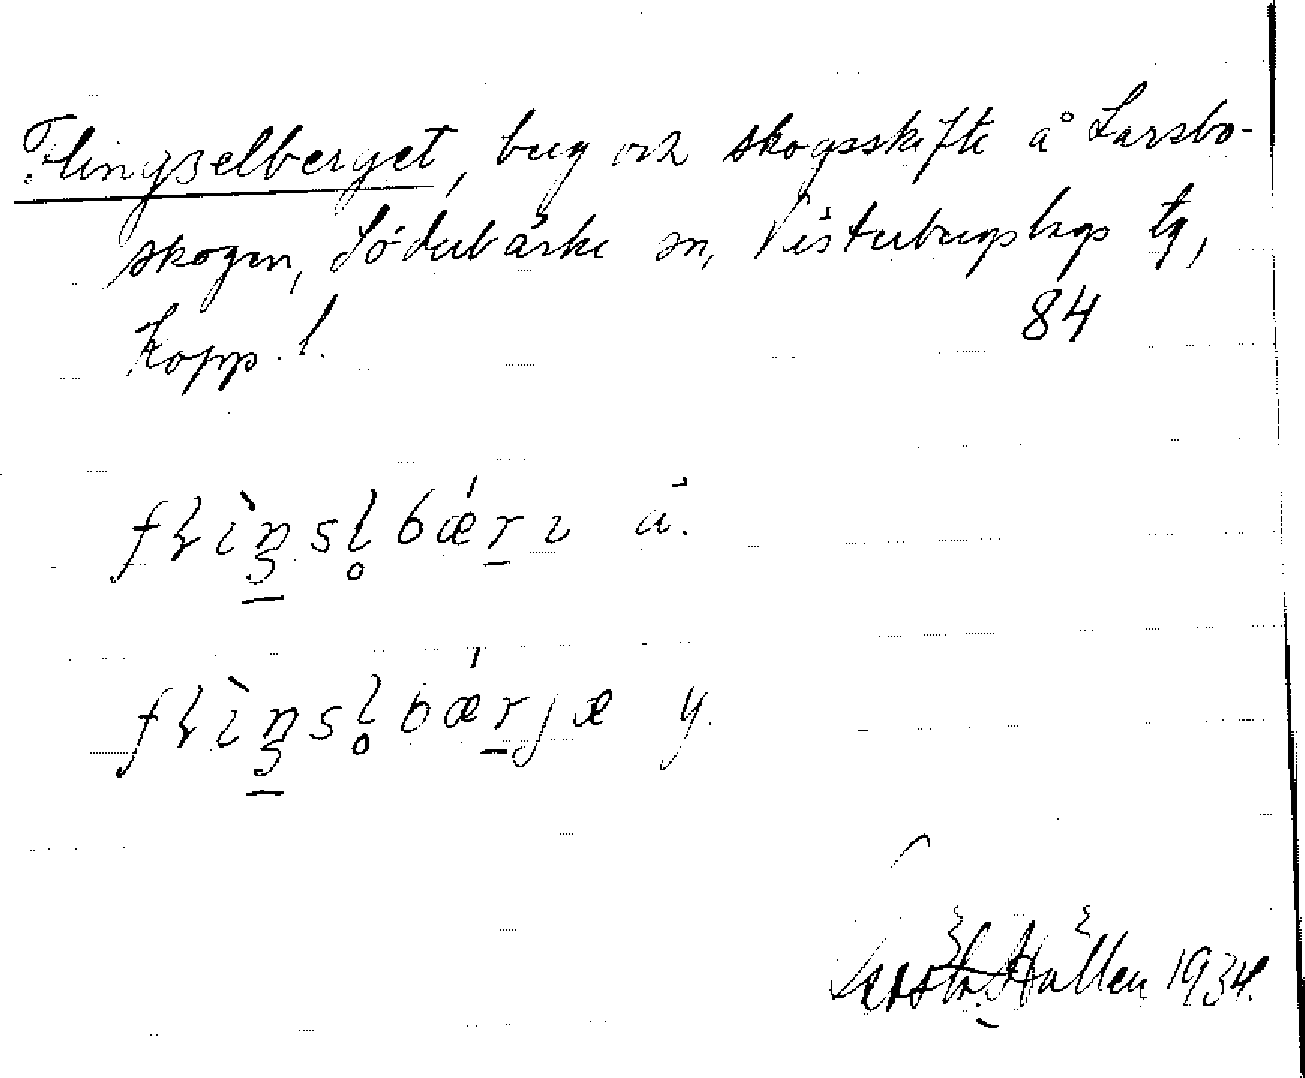 Flingselberget, berg och skogsskifte å Larsbo-
skogen, Söderbärke sn, Västerbergslags tg,
Kopp. l. 84
flìŋsl̥bǽrɩ ä.
flìŋsl̥bǽrjæ y.
Hallen 1934.